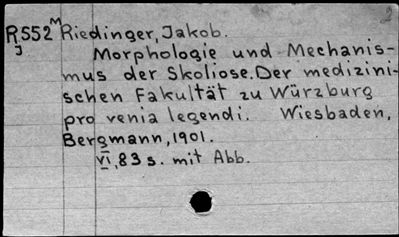 R552 M Riedinger, Jakob.
J Morphologie und Mechanis-
mus der Skoliose. Der medizini-
schen Fakultät zu Würzburg
pro venia legendi. Wiesbaden,
Bergmann, 1901.
VI, 83 s. mit Abb.